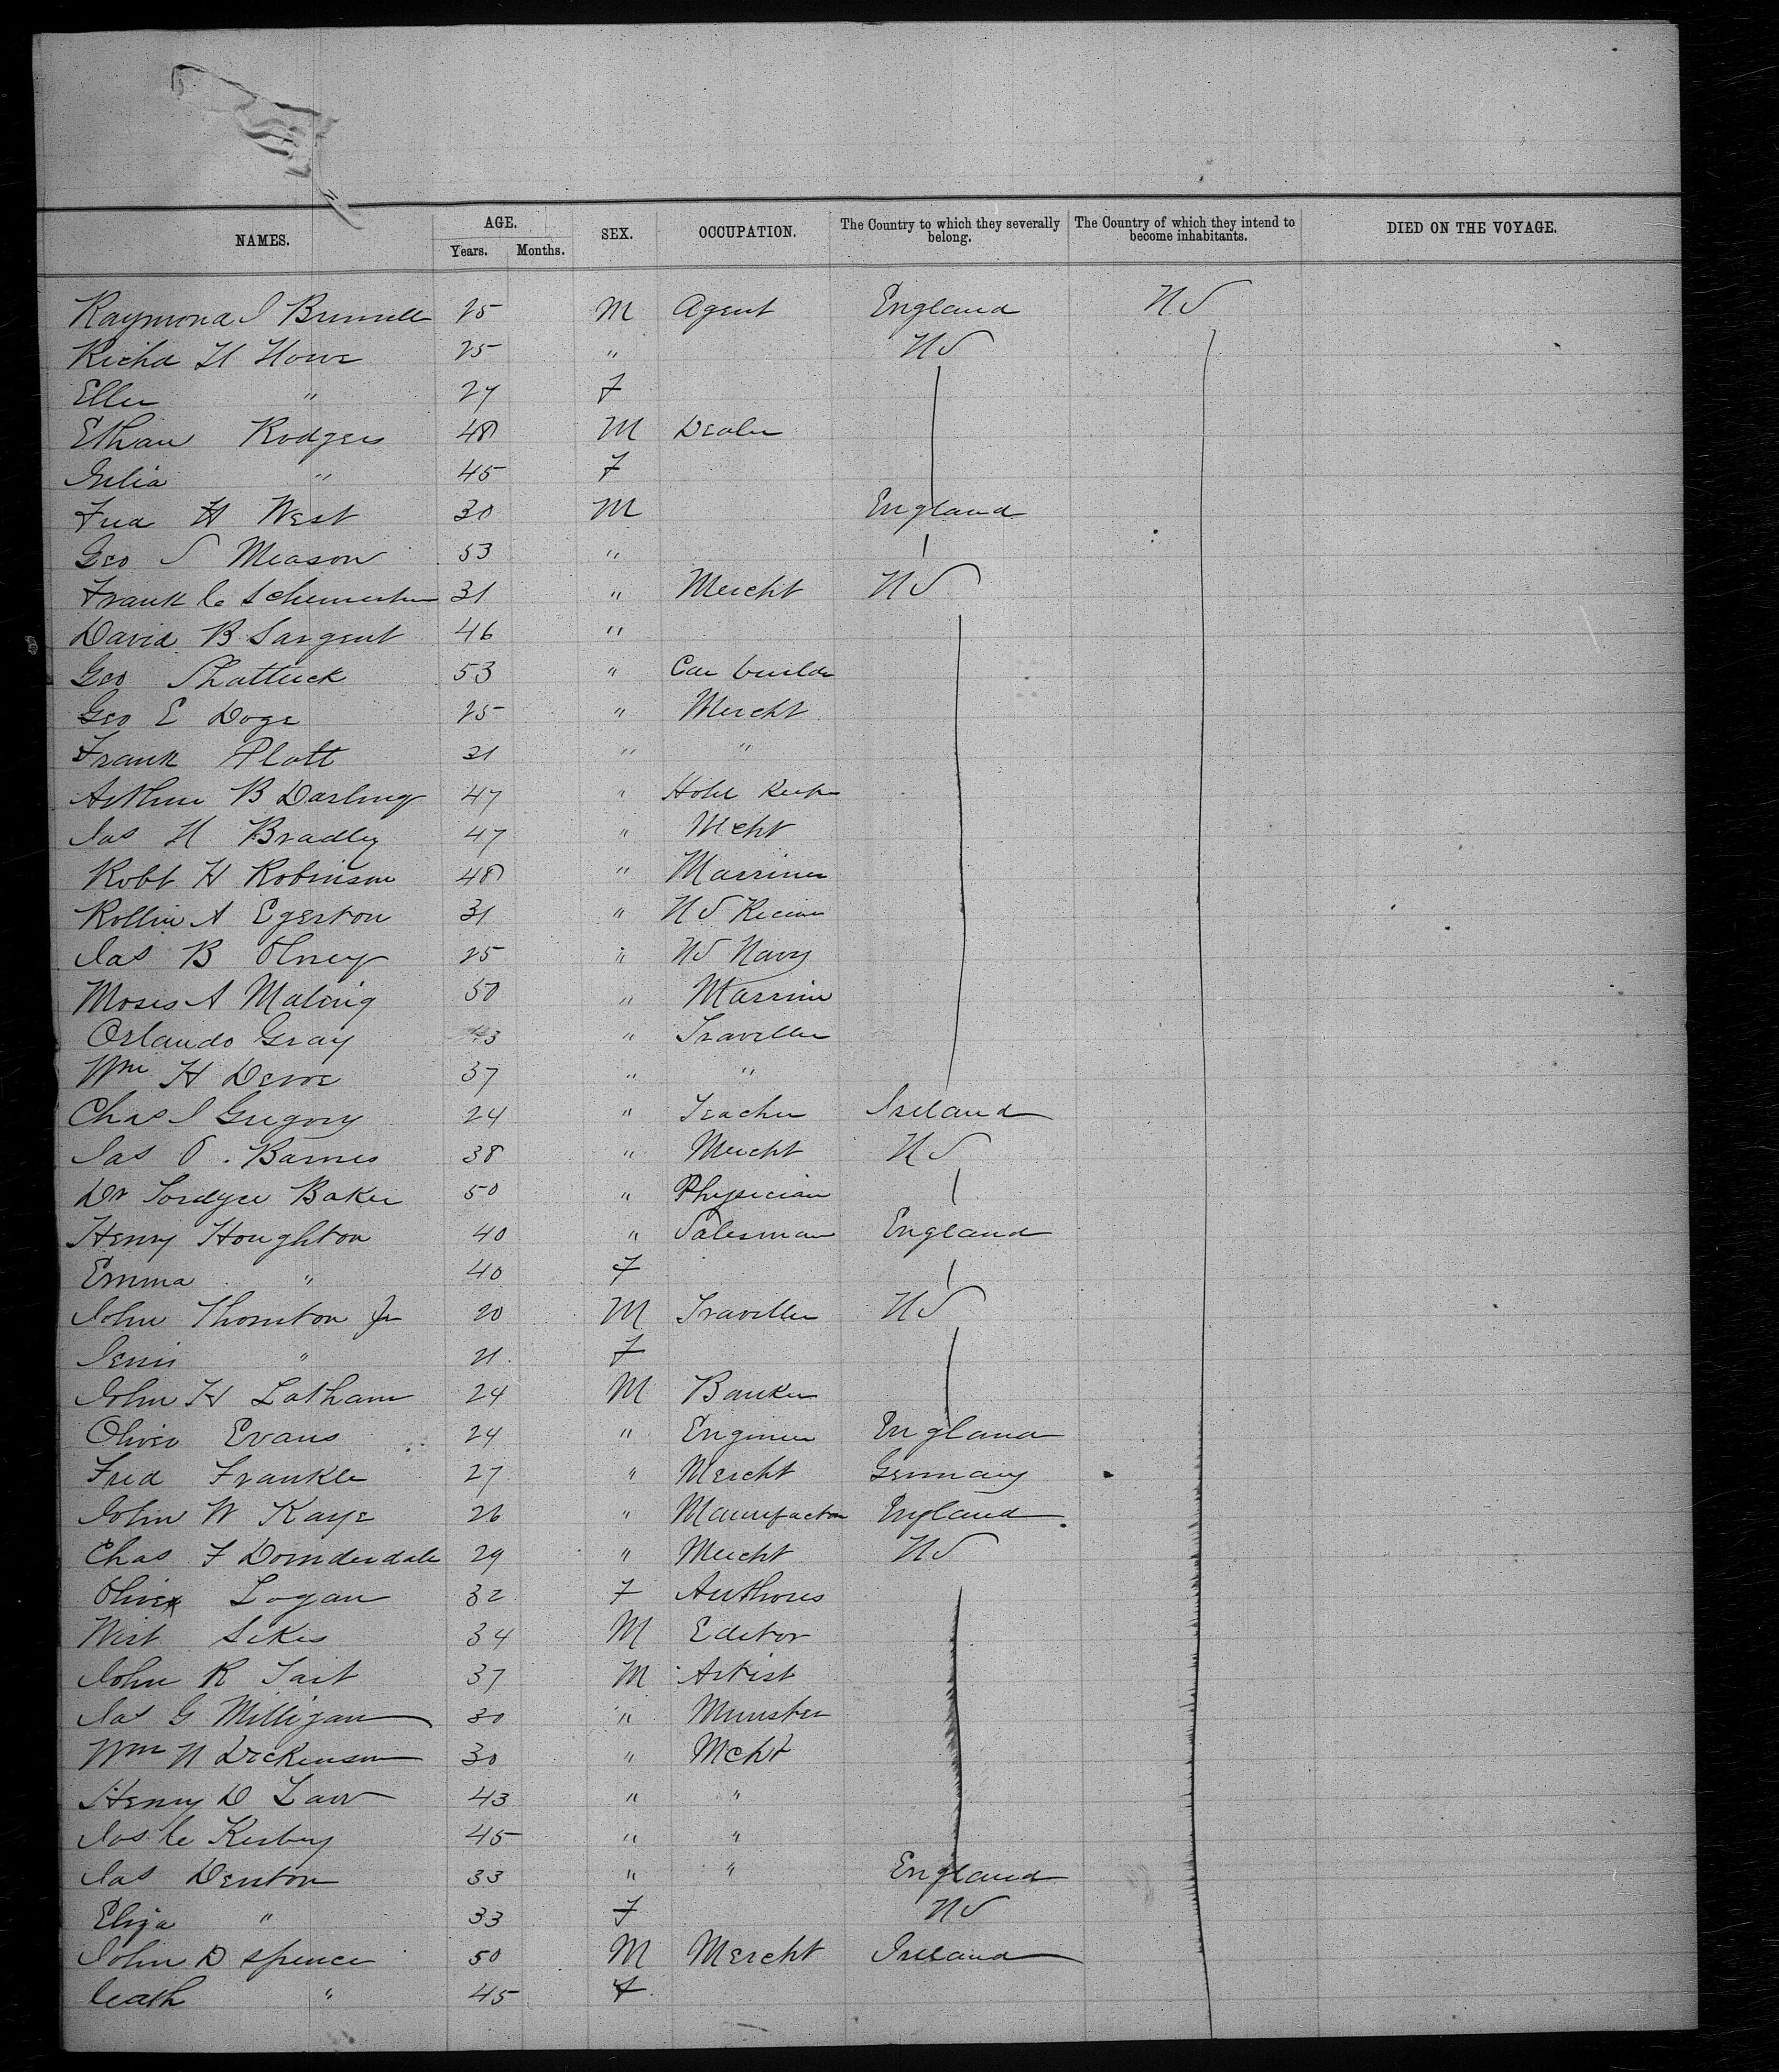 NAMES. AGE. SEX. OCCUPATION. The Country to which they severally belong. The Country of which they intend to become inhabitants. DIED ON THE VOYAGE.
Years. Months.
Raymond I 25 M Agent England US
Richd H Howe 25 " US
Ellen " 27 F
Ethan Rodgers 48 M Dealer
Julia " 45 F
Fred H West 30 M England
Geo S Meason 53 "
Frank C 31 " Mercht US
David B Sargent 46 "
Geo Shattuck 53 " Car builder
Geo E Doge 25 " Mercht
Frank Platt 31 " "
Arthur B Darling 47 " Hotel Keeper
Jas H Bradley 47 " Mcht
Robt H Robinson 48 " Marriner
Rollin A Egerton 31 " US
Jas B Olney 25 " US Navy
Moses A Maling 50 " Marriner
Orlando Gray 43 " Traveller
Wm H Dewe 37 " "
Chas I Gregory 24 " Teacher Ireland
Jas O. Barnes 38 " Mercht US
Dr Fordyce Baker 50 " Physician
Henry Houghton 40 " Salesman England
Emma " 40 F
John Thornton Jr 20 M Traveller US
" 21 F
John H Latham 24 M Banker
Oliver Evans 24 " Engineer England
Fred Frankle 27 " Mercht Germany
John W Kaye 26 " Manufactor England
Chas F 29 " Mercht US
Olive Logan 32 F Authores
Wirt Sikes 34 M Editor
John R Tait 37 M Artist
Jas G Milligan 30 " Minister
Wm N Dickenson 30 " Mcht
Henry D Law 43 " "
Jas C Kerby 45 " "
Jas Denton 33 " " England
Eliza " 33 F US
John D Spence 50 M Mercht Ireland
Cath " 45 F